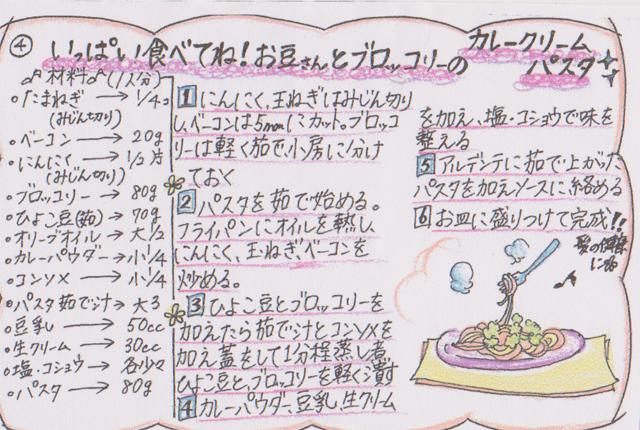 ④ いっぱい食べてね!お豆さんとブロッコリーの
カレークリーム
パスタ
材料(1人分)
・たまねぎ → 1/4コ
(みじん切り)
・ベーコン → 20g
・にんにく → 1/2片
(みじん切り)
・ブロッコリー → 80g
・ひよこ豆(茹) → 70g
・オリーブオイル → 大1/2
・カレーパウダー → 小1/4
・コンソメ → 小1/4
・パスタ茹で汁 → 大3
・豆乳 → 50cc
・生クリーム → 30cc
・塩・コショウ → 各少々
・パスタ → 80g
1 にんにく、玉ねぎはみじん切り
し、ベーコンは5mmにカット。ブロッコ
リーは軽く茹で、小房に分け
ておく
2 パスタを茹で始める。
フライパンにオイルを熱し、
にんにく、玉ねぎ、ベーコンを
炒める。
3 ひよこ豆とブロッコリーを
加えたら茹で汁とコンソメを
加え蓋をして1分程蒸し煮
ひよこ豆と、ブロッコリーを軽く潰す
4 カレーパウダー、豆乳、生クリーム
を加え、塩・コショウで味を
整える
5 アルデンテに茹で上がった
パスタを加えソースに絡める
6 お皿に盛りつけて完成!!
髪の健康
にも